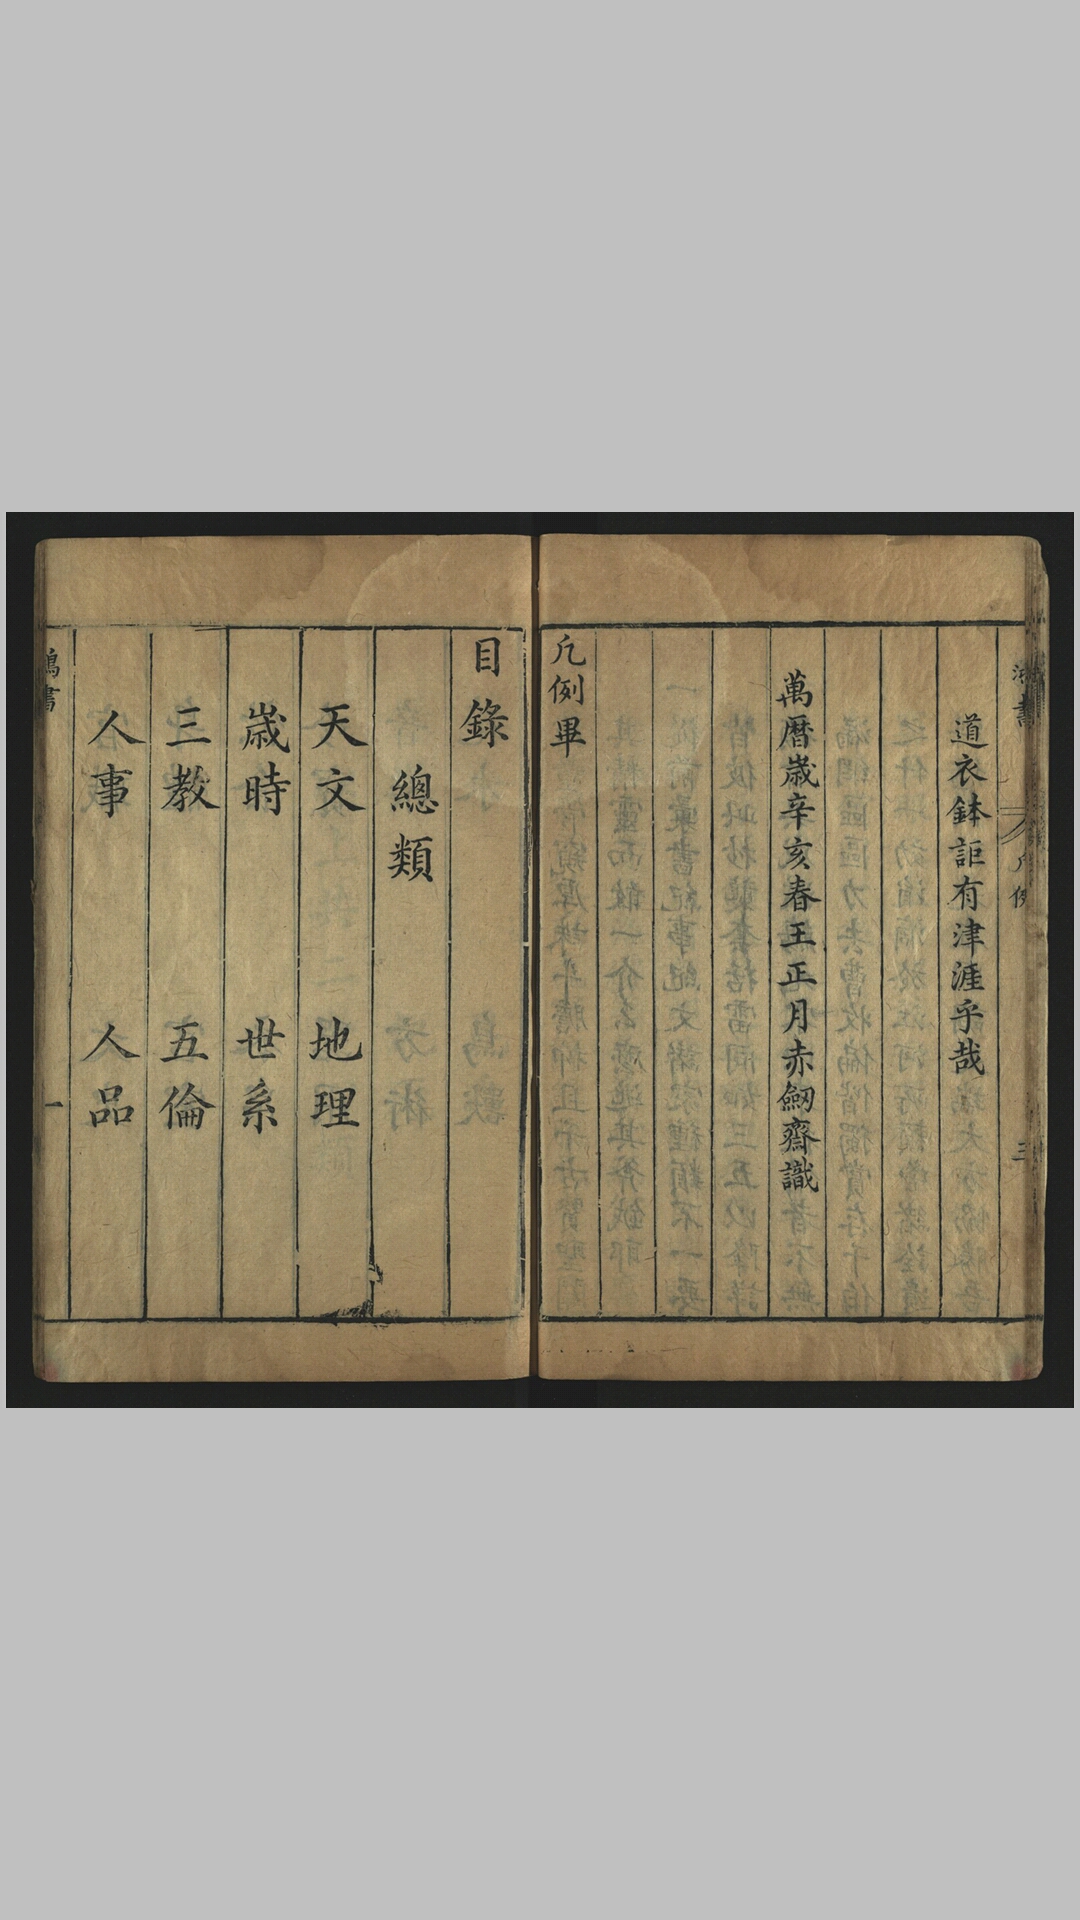 道衣鉢詎有津涯乎哉
萬曆歲辛亥春王正月赤劒齋識
凡例畢
目錄
總類
天文 地理
歲時 世系
三教 五倫
人事 人品
鴻書
一